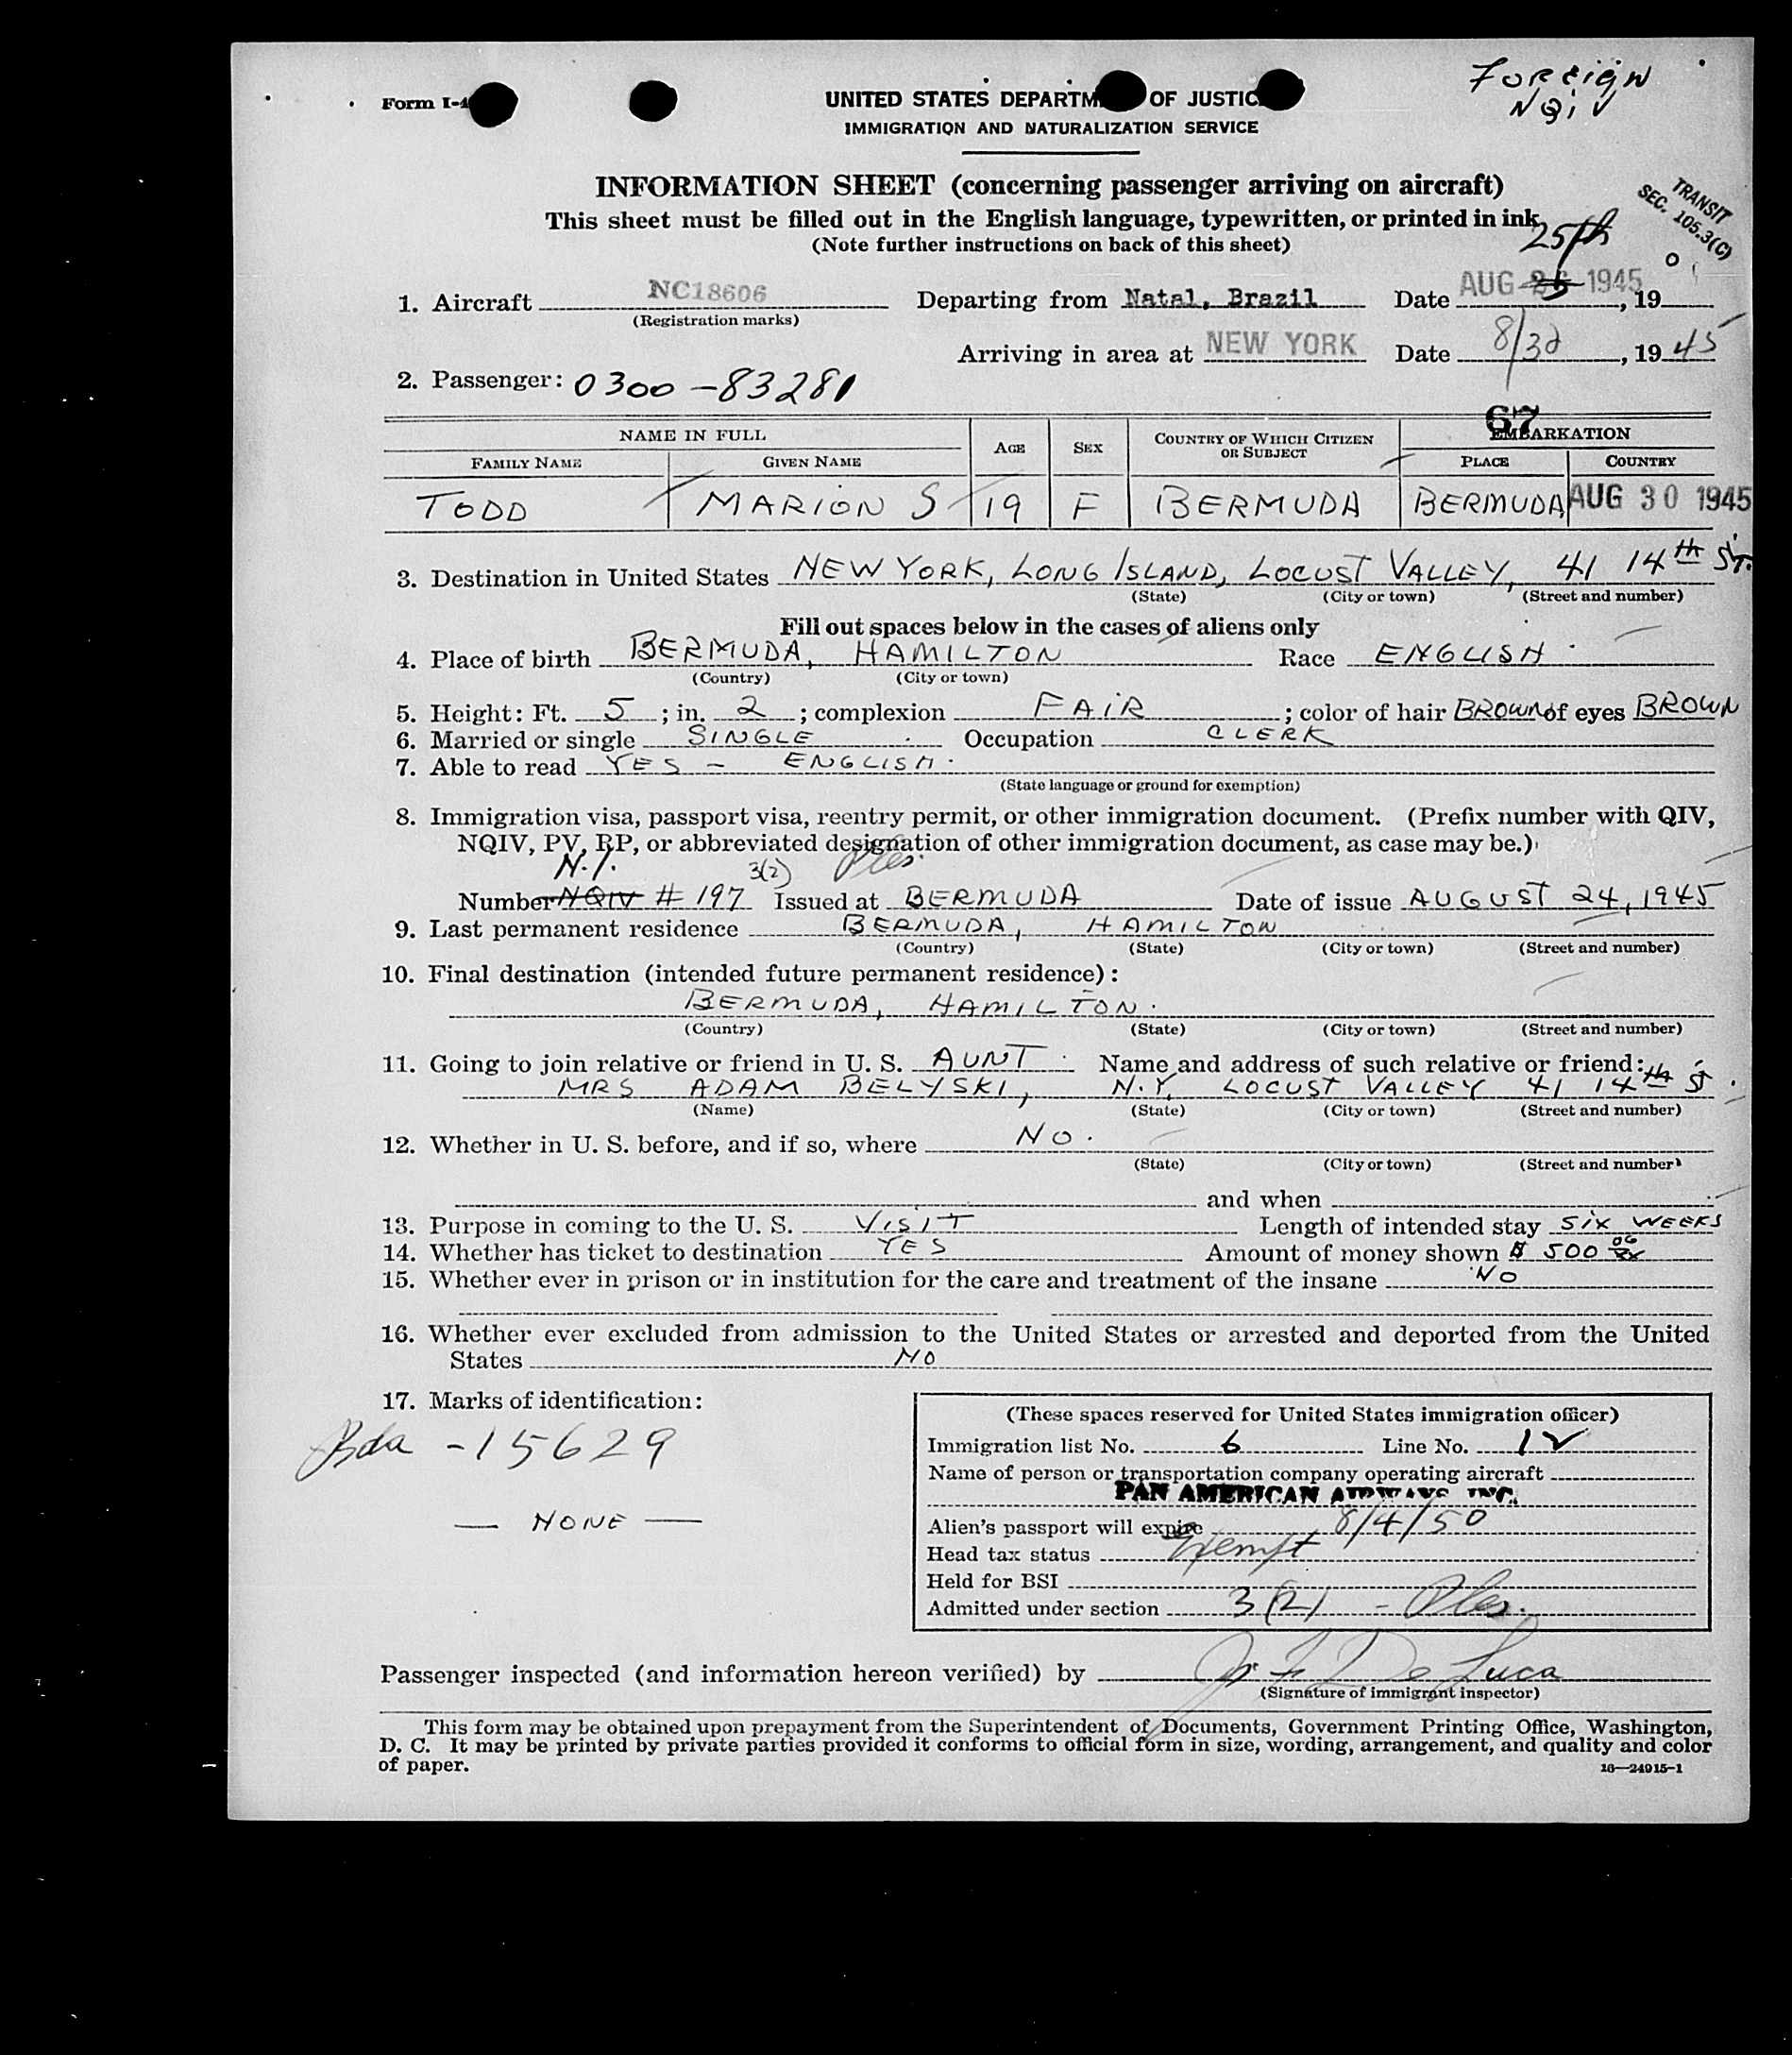 Foreign
NQIV
Form I-4
UNITED STATES DEPARTM OF JUSTIC
IMMIGRATION AND NATURALIZATION SERVICE
INFORMATION SHEET (concerning passenger arriving on aircraft)
TRANSIT
SEC. 105.3(C)
This sheet must be filled out in the English language, typewritten, or printed in ink.
(Note further instructions on back of this sheet)
25th
1. Aircraft NC18606 Departing from Natal, Brazil Date AUG 1945, 19
(Registration marks)
Arriving in area at NEW YORK Date 8/30, 1945
2. Passenger: 0300-83281
67
NAME IN FULL AGE SEX COUNTRY OF WHICH CITIZEN OR SUBJECT EMBARKATION
FAMILY NAME GIVEN NAME PLACE COUNTRY
TODD MARION S 19 F BERMUDA BERMUDA AUG 30 1945
3. Destination in United States NEW YORK, LONG ISLAND, LOCUST VALLEY, 41 14th ST.
(State) (City or town) (Street and number)
Fill out spaces below in the cases of aliens only
4. Place of birth BERMUDA, HAMILTON Race ENGLISH
(Country) (City or town)
5. Height: Ft. 5; in. 2; complexion FAIR; color of hair BROWN of eyes BROWN
6. Married or single SINGLE Occupation CLERK
7. Able to read YES - ENGLISH.
(State language or ground for exemption)
8. Immigration visa, passport visa, reentry permit, or other immigration document. (Prefix number with QIV,
NQIV, PV, RP, or abbreviated designation of other immigration document, as case may be.)
N.I. 3(2)
Number NQIV # 197 Issued at BERMUDA Date of issue AUGUST 24, 1945
9. Last permanent residence BERMUDA, HAMILTON
(Country) (State) (City or town) (Street and number)
10. Final destination (intended future permanent residence):
BERMUDA, HAMILTON.
(Country) (State) (City or town) (Street and number)
11. Going to join relative or friend in U. S. AUNT. Name and address of such relative or friend:
MRS ADAM BELYSKI, N.Y. LOCUST VALLEY 41 14th ST.
(Name) (State) (City or town) (Street and number)
12. Whether in U. S. before, and if so, where NO.
(State) (City or town) (Street and number)
and when
13. Purpose in coming to the U. S. VISIT Length of intended stay SIX WEEKS
14. Whether has ticket to destination YES Amount of money shown $ 500
15. Whether ever in prison or in institution for the care and treatment of the insane NO
16. Whether ever excluded from admission to the United States or arrested and deported from the United
States NO
17. Marks of identification:
Bda - 15629
— NONE —
(These spaces reserved for United States immigration officer)
Immigration list No. 6 Line No. 1
Name of person or transportation company operating aircraft
PAN AMERICAN AIRWAYS INC.
Alien's passport will expire 8/4/50
Head tax status Exempt
Held for BSI
Admitted under section 3(2) -
Passenger inspected (and information hereon verified) by De Luca
(Signature of immigrant inspector)
This form may be obtained upon prepayment from the Superintendent of Documents, Government Printing Office, Washington,
D. C. It may be printed by private parties provided it conforms to official form in size, wording, arrangement, and quality and color
of paper.
16—24915-1